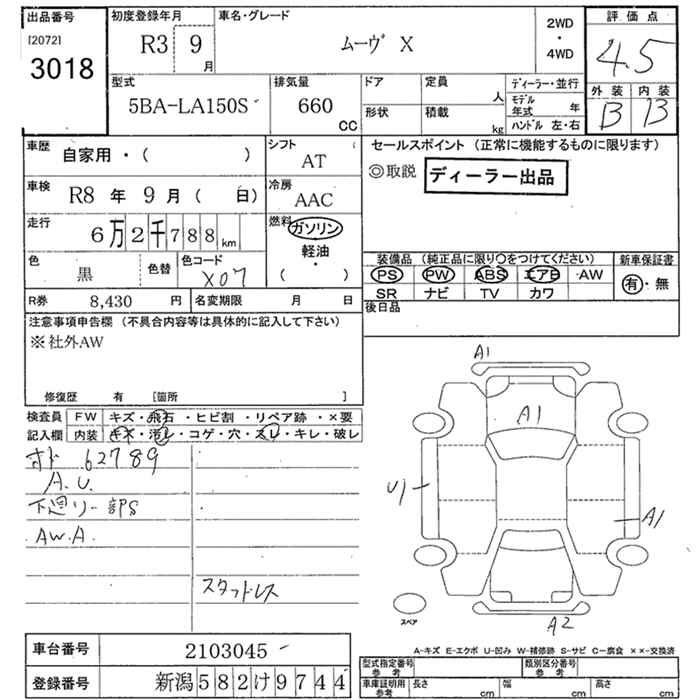 出品番号 初度登録年月 車名・グレード 評価点
[2072] R3 9月 ムーヴ X 2WD・4WD 4.5
3018
型式 排気量 ドア 定員 人 ディーラー・並行 外装 内装
5BA-LA150S 660 CC 形状 積載 kg モデル年式 年 B B
ハンドル 左・右
車歴 自家用・( ) シフト AT セールスポイント (正常に機能するものに限ります)
◎取説 ディーラー出品
車検 R8年 9月( 日) 冷房 AAC
走行 6万2千788km 燃料 ガソリン・軽油・( )
色 黒 色替 色コード X07 装備品 (純正品に限り○をつけてください) 新車保証書
PS PW ABS エアB AW 有・無
R券 8,430 円 名変期限 月 日 SR ナビ TV カワ
注意事項申告欄 (不具合内容等は具体的に記入して下さい) 後日品
※社外AW
修復歴 有 [箇所 ]
検査員 FW キズ・飛石・ヒビ割・リペア跡・×要
記入欄 内装 キズ・汚レ・コゲ・穴・スレ・キレ・破レ
A1
A1
オド 62789
A.U.
U1
下廻り一部S
A1
AW.A
スタッドレス
スペア
A2
A-キズ E-エクボ U-凹み W-補修跡 S-サビ C-腐食 ××-交換済
車台番号 2103045 型式指定番号 参考 類別区分番号 参考
登録番号 新潟582け9744 車庫証明用 参考 長さ cm 幅 cm 高さ cm